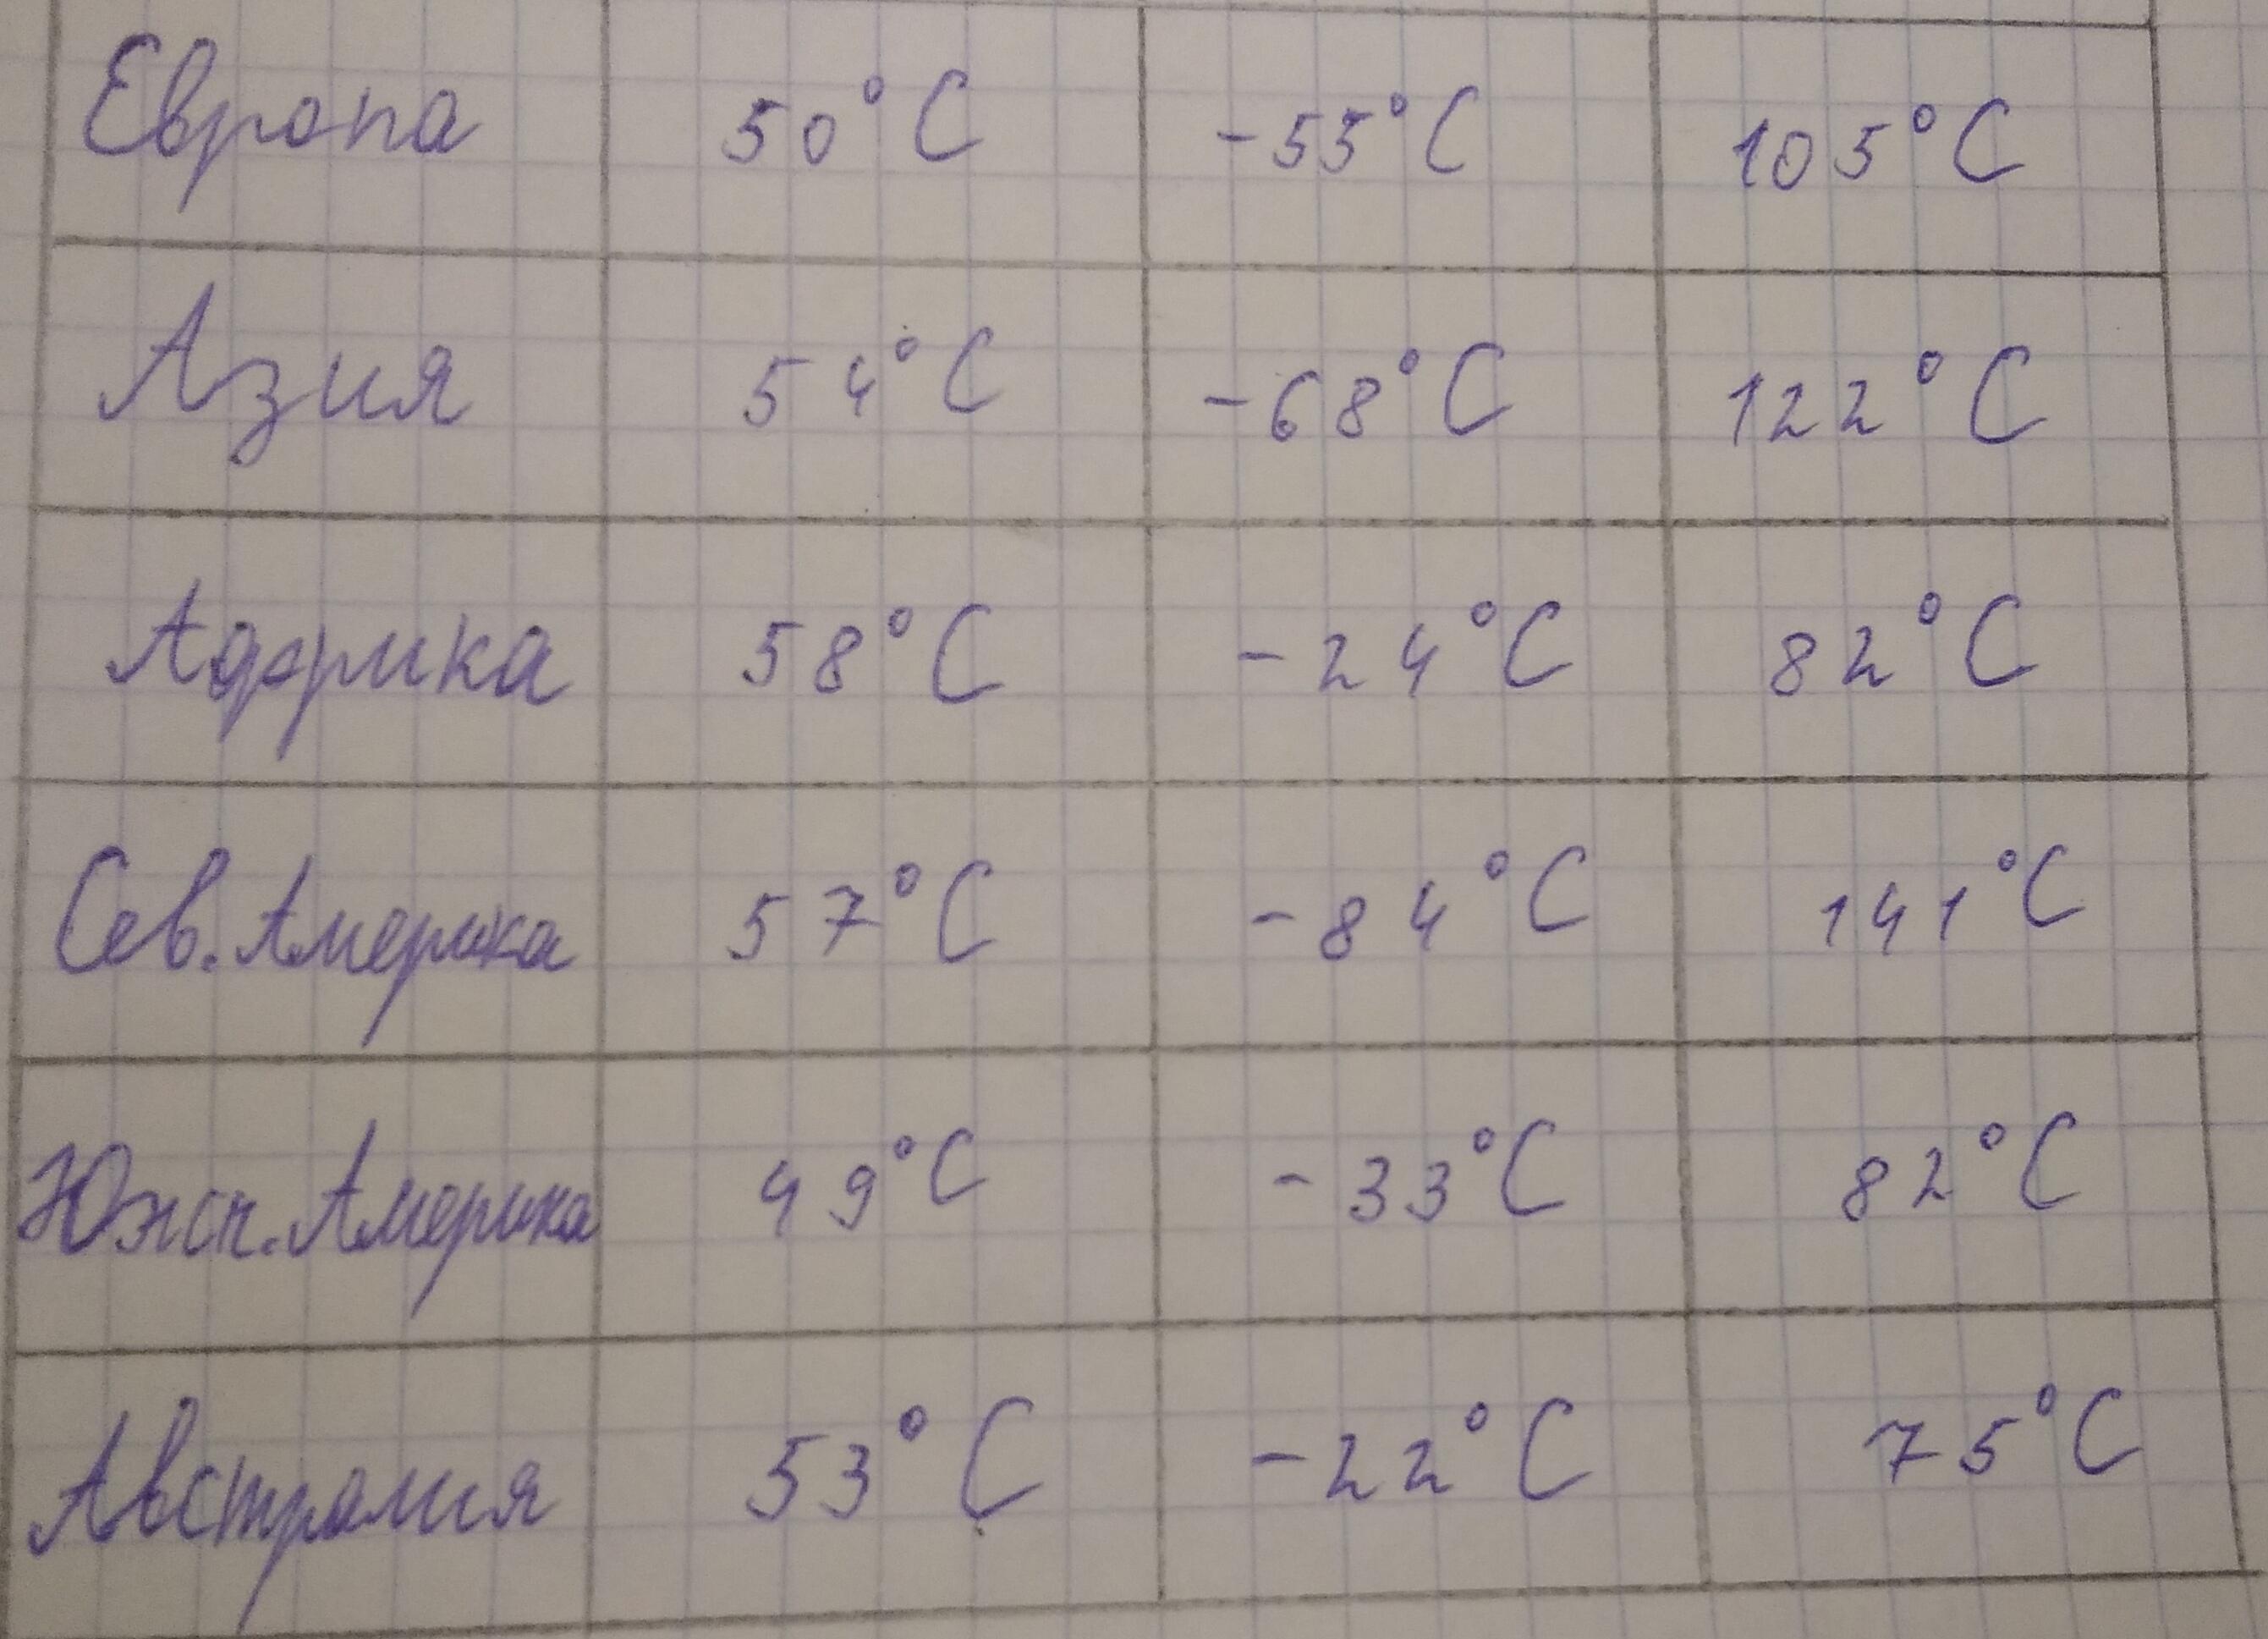 Европа 50°C -55°C 105°C
Азия 54°C -68°C 122°C
Африка 58°C -24°C 82°C
Сев. Америка 57°C -84°C 141°C
Южн. Америка 49°C -33°C 82°C
Австралия 53°C -22°C 75°C